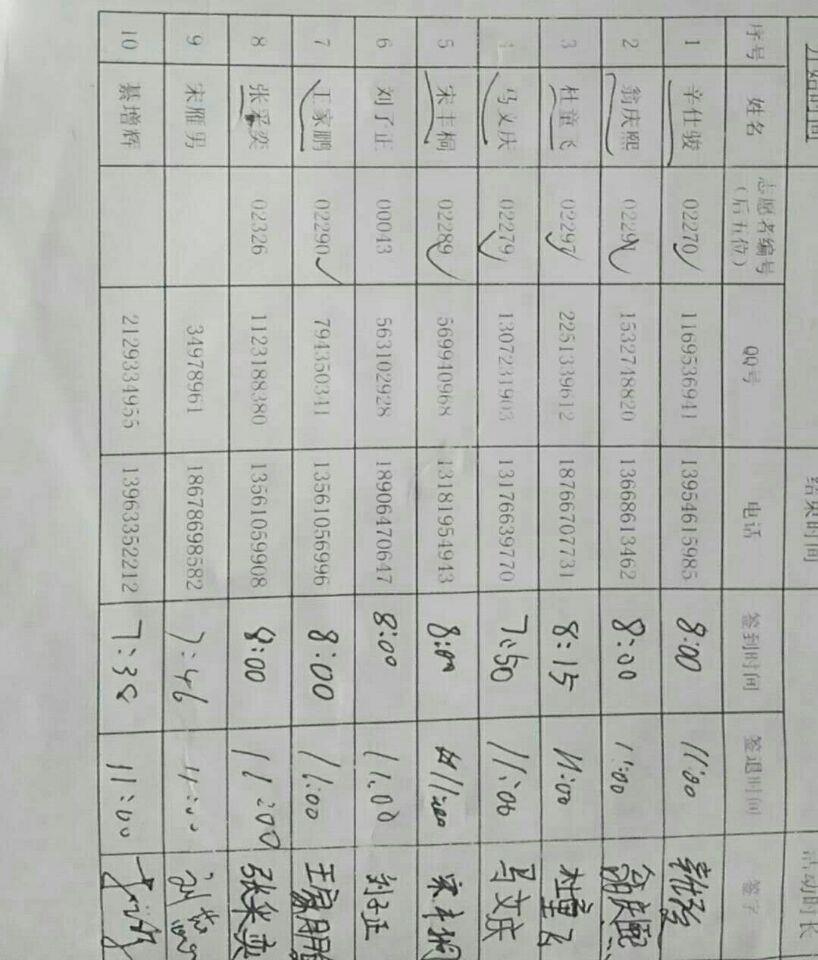 开始时间 结束时间 活动时长
序号 姓名 志愿者编号（后五位） QQ号 电话 签到时间 签退时间 签字
1 辛仕骏 02270 1169536941 13954615985 8:00 11:00
2 翁庆熙 02291 1532748820 13668613462 8:00 11:00 翁庆熙
3 杜童飞 02297 2251339612 18766707731 8:15 11:00 杜童飞
4 马文庆 02279 1307231903 13176639770 7:50 11:00 马文庆
5 宋丰桐 02289 569940968 13181954943 8:00 11:00 宋丰桐
6 刘子正 00043 563102928 18906470647 8:00 11:00 刘子正
7 王家鹏 02290 794350341 13561056996 8:00 11:00 王家鹏
8 张采奕 02326 1123188380 13561059908 8:00 11:00 张采奕
9 宋雁男 34978961 18678698582 7:46 11:00
10 綦增辉 2129334955 13963352212 7:38 11:00